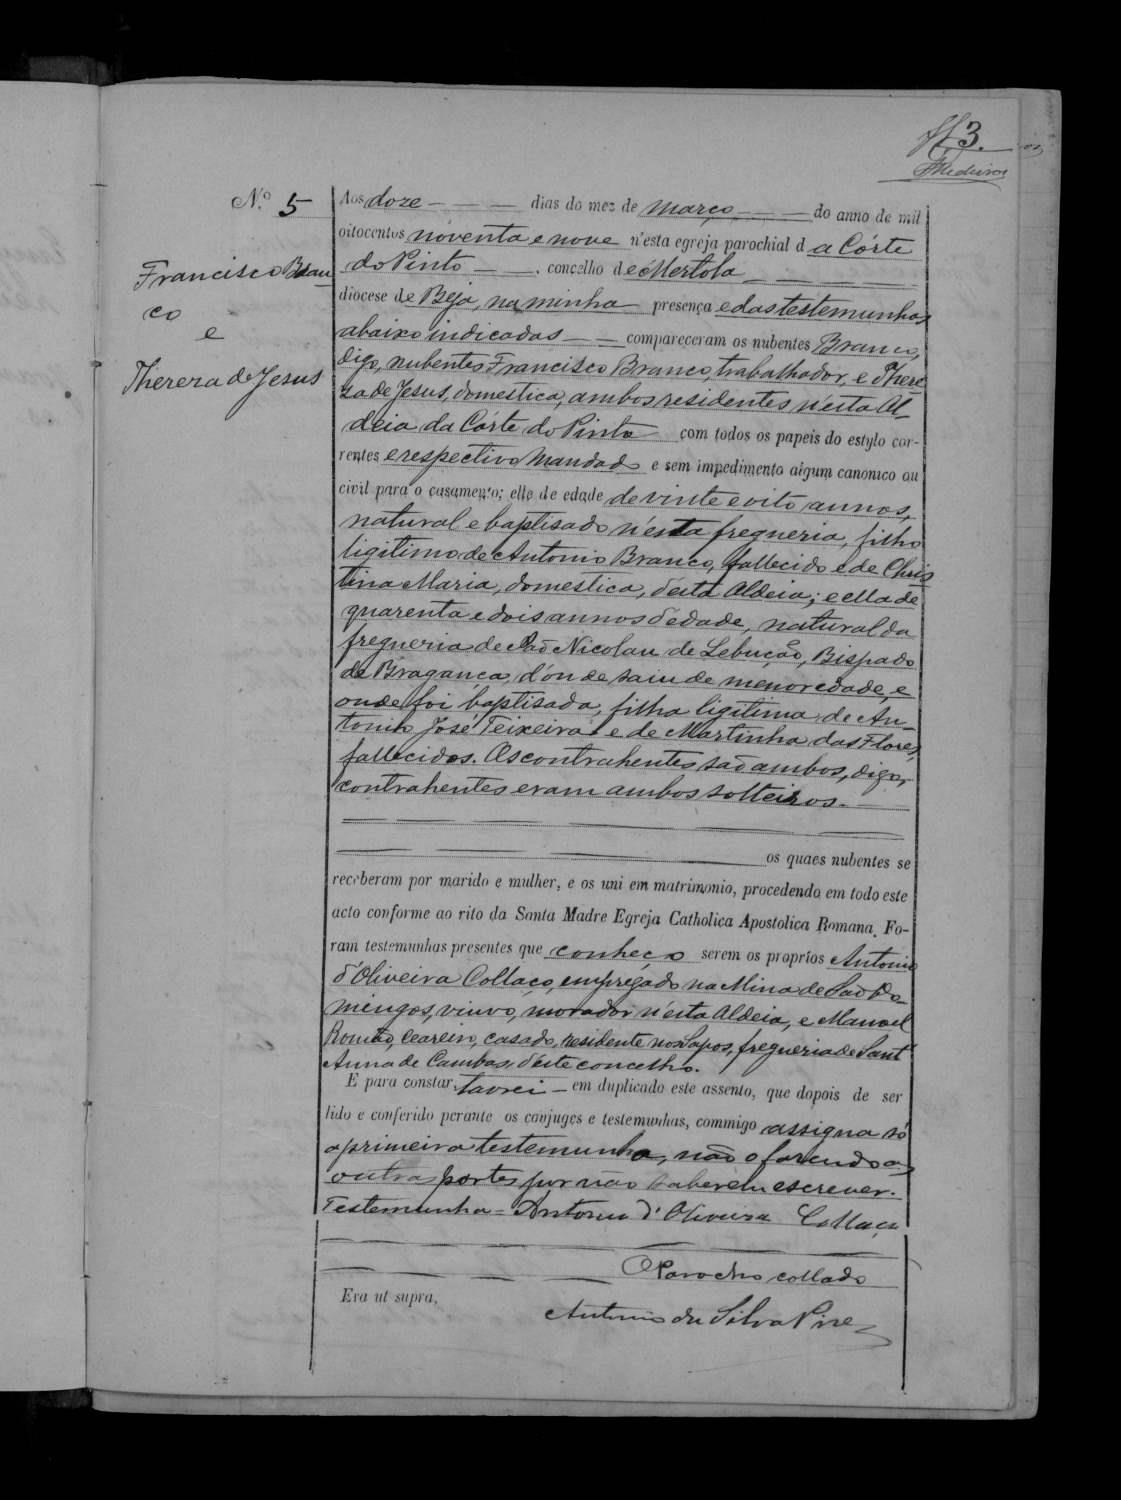 3.
Medeiros
N.º 5
Francisco Bran
co
e
Thereza de Jesus
Aos doze dias do mez de março do anno de mil
oitocentos noventa e nove n'esta egreja parochial da Córte
do Pinto, concelho de Mertola
diocese de Beja, na minha presença e das testemunhas
abaixo indicadas compareceram os nubentes Branco,
digo, nubentes Francisco Branco, trabalhador, e There
za de Jesus, domestica, ambos residentes n'esta Al-
deia da Córte do Pinto com todos os papeis do estylo cor-
rentes e respectivo Mandado e sem impedimento algum canonico ou
civil para o casamento; elle de edade de vinte e oito annos,
natural e baptisado n'esta fregueria, filho
ligitimo de Antonio Branco, fallecido e de Chris
tina Maria, domestica, d'esta Aldeia; e ella de
quarenta e dois annos d'edade, natural da
fregueria de São Nicolau de Lebução, Bispado
de Bragança, d'onde saiu de menor edade, e
onde foi baptisada, filha ligitima de An-
tonio José Teixeira e de Martinha das Flores,
fallecidos. Os contrahentes são ambos, digo,
contrahentes eram ambos solteiros.
os quaes nubentes se
receberam por marido e mulher, e os uni em matrimonio, procedendo em todo este
acto conforme ao rito da Santa Madre Egreja Catholica Apostolica Romana. Fo-
ram testemunhas presentes que conheço serem os proprios Antonio
d'Oliveira Collaço, empregado na Mina de São Do-
mingos, viuvo, morador n'esta Aldeia, e Manoel
Romão, ceareiro, casado, residente nos Sapos, fregueria de Sant'
Anna de Cambas, d'este concelho.
E para constar, lavrei em duplicado este assento, que depois de ser
lido e conferido perante os conjuges e testemunhas, commigo assigna só
a primeira testemunha, não o fazendo as
outras partes por não saberem escrever.
Testemunha = Antonio d'Oliveira Collaço
O Parocho collado
Era ut supra,
Antonio da Silva Pires